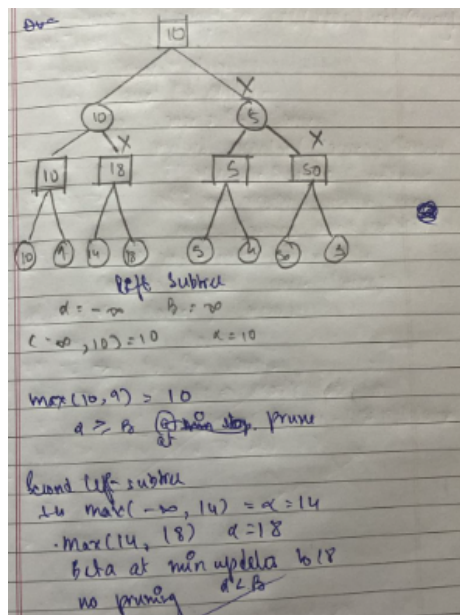 Ans
10
X
10 5
X X
10 18 5 50
10 9 14 18 5 4 50 3
left subtree
α = -∞ β = ∞
(-∞, 10) = 10 α = 10
max(10, 9) = 10
α ≥ β prune
Second left subtree
max(-∞, 14) = α = 14
max(14, 18) α = 18
Beta at min updata to 18
no pruning α < β